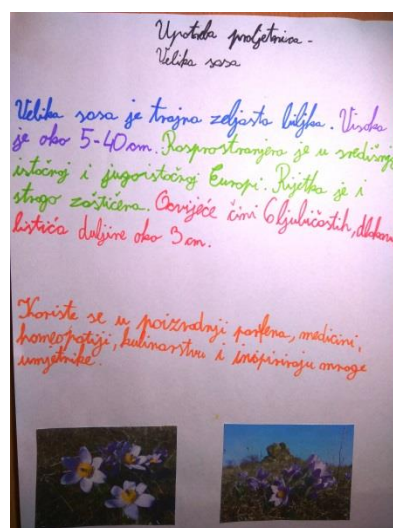 Upotreba proljetnica -
Velika sasa
Velika sasa je trajna zeljasta biljka. Visoka
je oko 5-40 cm. Rasprostranjena je u središnjoj
istočnoj i jugoistočnoj Europi. Rijetka je i
strogo zaštićena. Ocvijeće čini 6 ljubičastih, dlakavih
listića duljine oko 3 cm.
Koriste se u poizvodnji parfena, medicini,
homeopatiji, kulinarstvu i inspiriraju mnoge
umjetnike.